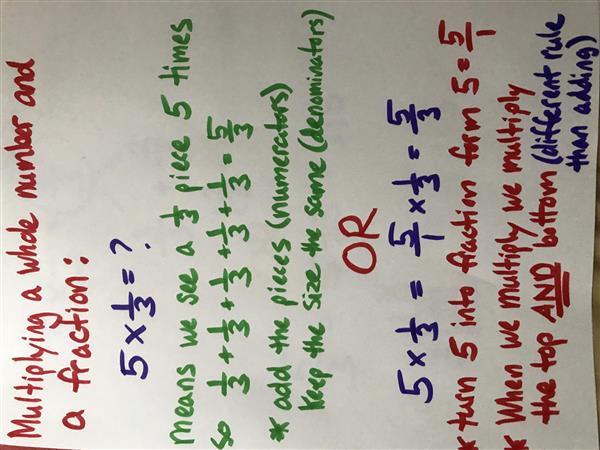 Multiplying a whole number and
a fraction:
5 × 1/3 = ?
means we see a 1/3 piece 5 times
so 1/3 + 1/3 + 1/3 + 1/3 + 1/3 = 5/3
* add the pieces (numerators)
keep the size the same (denominators)
OR
5 × 1/3 = 5/1 × 1/3 = 5/3
* turn 5 into fraction form 5 = 5/1
* When we multiply we multiply
the top AND bottom (different rule
than adding)